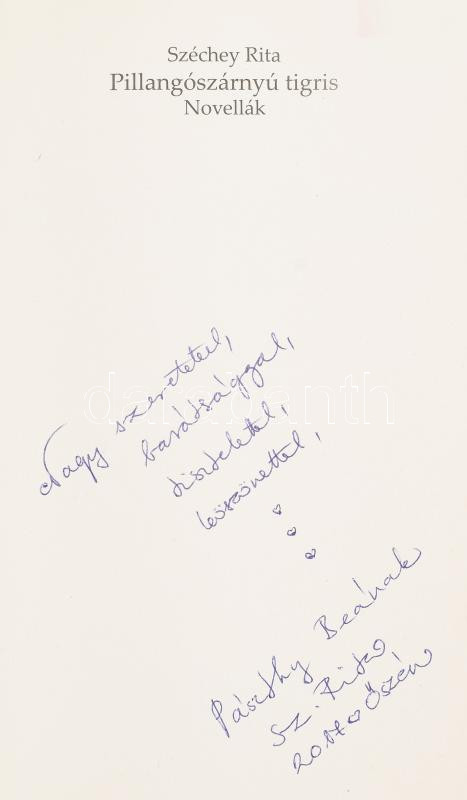 Széchey Rita
Pillangószárnyú tigris
Novellák
Nagy szeretettel,
barátsággal,
tisztelettel,
köszönettel,
darabanth
Pászthy Beának
Sz. Rita
Őszén